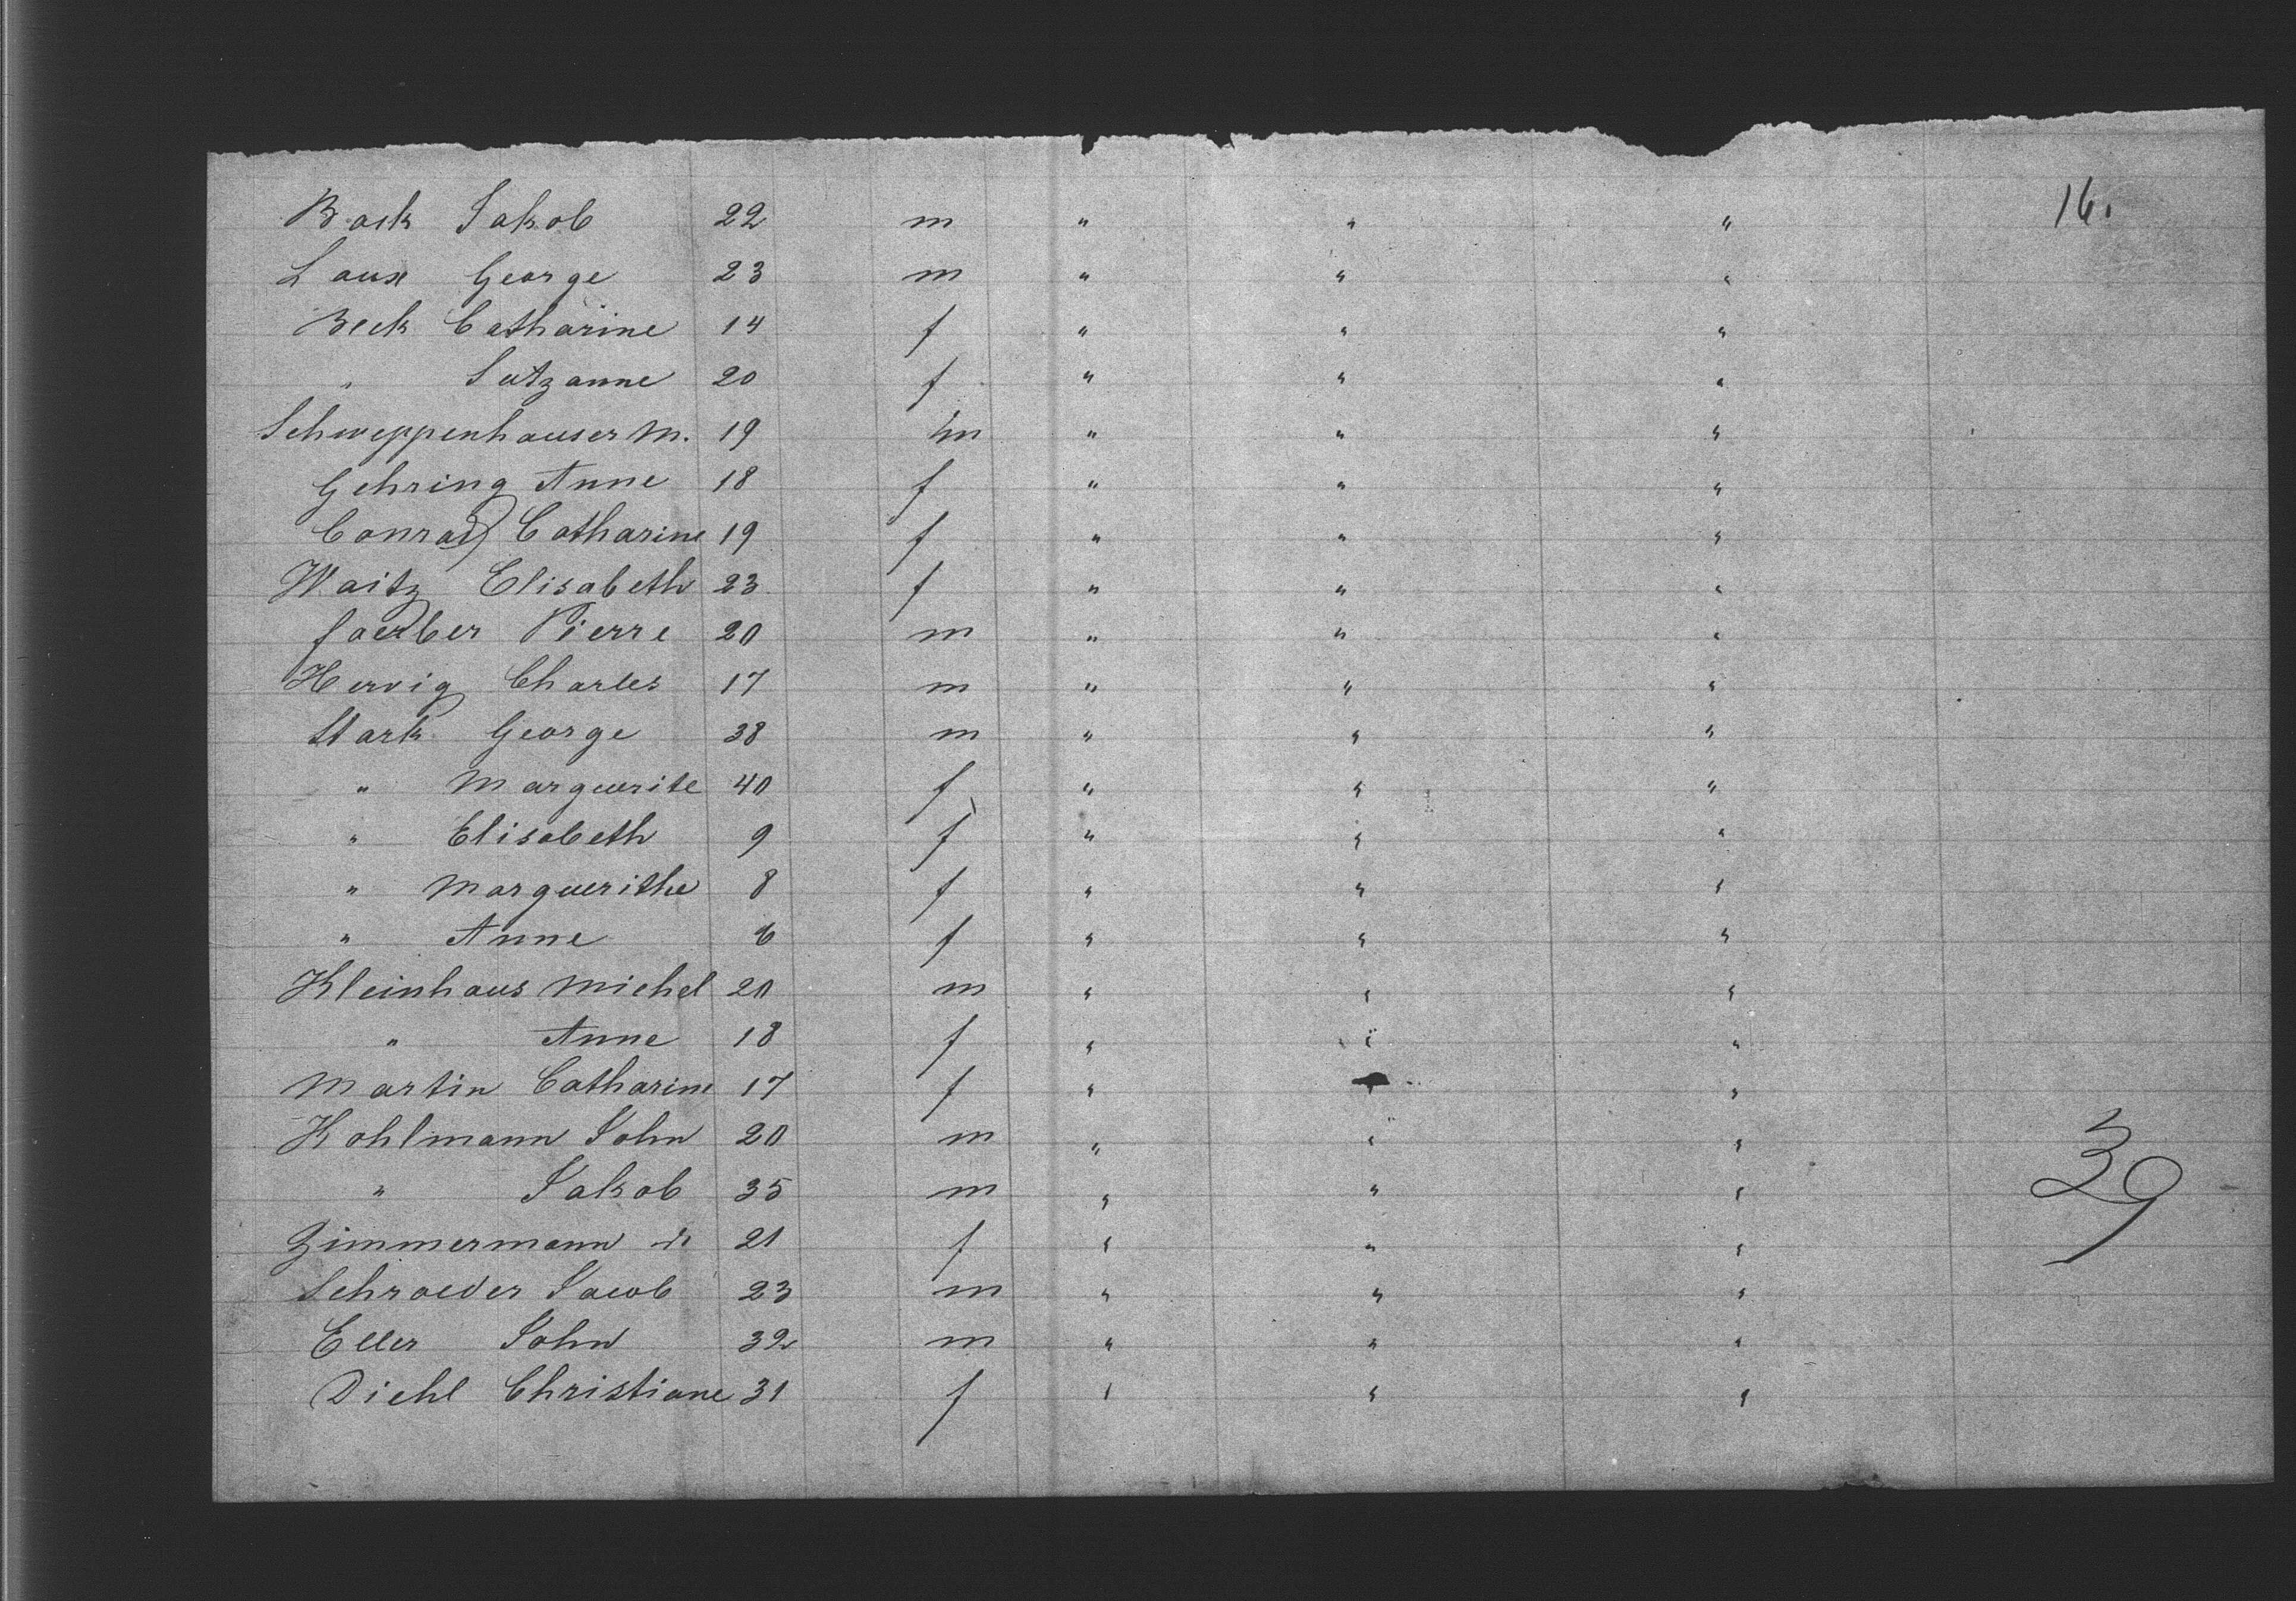 Back Jakob 22 m " " " 16.
Laux George 23 m " " "
Beck Catharine 14 f " " "
" Sutzanne 20 f " " "
Schweppenhauser M. 19 m " " "
Gehring Anne 18 f " " "
Conrad Catharine 19 f " " "
Waitz Elisabeth 23 f " " "
faerber Pierre 20 m " " "
Hervig Charles 17 m " " "
Stark George 38 m " " "
" Marguerite 40 f " " "
" Elisabeth 9 f " " "
" Marguerithe 8 f " " "
" Anne 6 f " " "
Kleinhaus Michel 20 m " " "
" Anne 18 f " " "
Martin Catharine 17 f " " "
Kohlmann John 20 m " " "
" Jakob 35 m " " " 39
Zimmermann 21 f " " "
Schroeder Jacob 23 m " " "
Eller John 32 m " " "
Diehl Christiane 31 f " " "